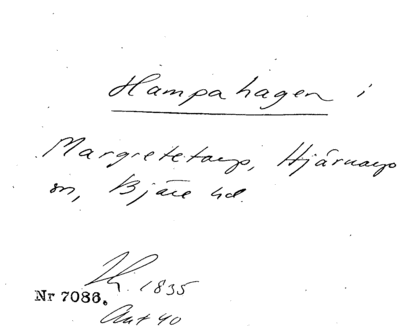 Hampahagen i
Margretetorp, Hjärnarp
sn, Bjäre hd.
1835
Nr 7086.
Akt 40